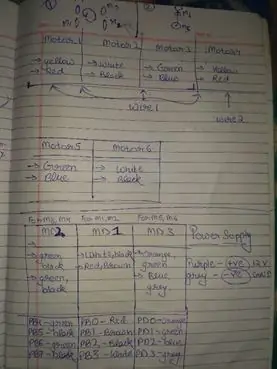 M1
M3
Motor1 Motor2 Motor3 Motor4
→ yellow → White → Green → Yellow
→ Red → Black → Blue → Red
wire1
wire2
Motor5 Motor6
→ Green → White
→ Blue → Black
For M3, M4 For M1, M2 For M5, M6
MD2 MD1 MD3 Power Supply
→ green → White, black → orange,
black → Red, Brown green Purple - (+ve) 12V
→ green, → Blue gray - (-ve) GND
black grey.
PB4 - green PB0 - Red PD0 - orange
PB5 - black PB1 - Brown PD1 - green
PB6 - green PB2 - Black PD2 - blue
PB7 - black PB3 - White PD3 - grey